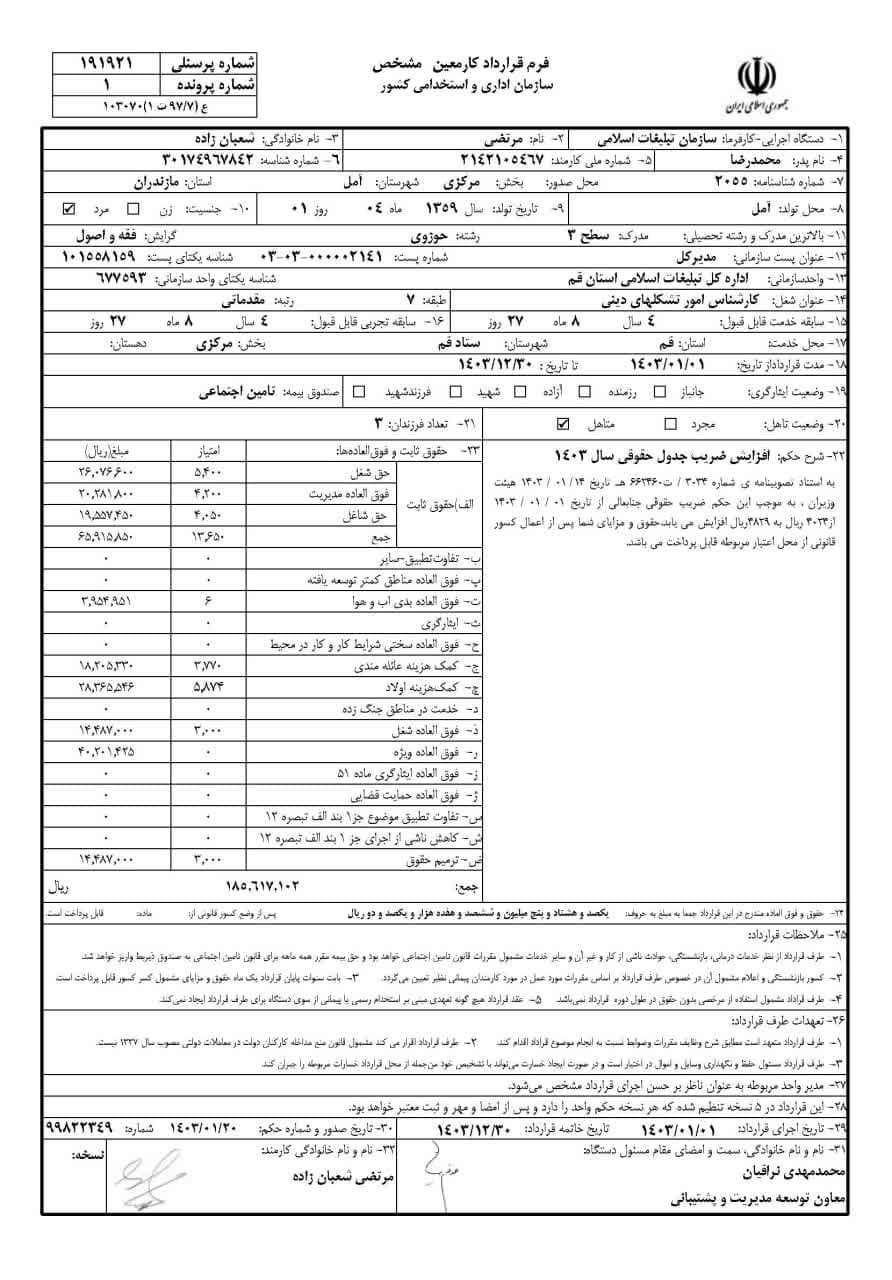 جمهوری اسلامی ایران
فرم قرارداد کارمعین مشخص
سازمان اداری و استخدامی کشور
شماره پرسنلی ۱۹۱۹۲۱
شماره پرونده ۱
ع (۹۷/۷ ت ۱) ۱۰۳۰۷۰
۱- دستگاه اجرایی-کارفرما: سازمان تبلیغات اسلامی ۲- نام: مرتضی ۳- نام خانوادگی: شعبان زاده
۴- نام پدر: محمدرضا ۵- شماره ملی کارمند: ۲۱۴۲۱۰۵۴۶۷ ۶- شماره شناسه: ۳۰۱۷۴۹۶۷۸۴۲
۷- شماره شناسنامه: ۲۰۵۵ محل صدور: بخش: مرکزی شهرستان: آمل استان: مازندران
۸- محل تولد: آمل ۹- تاریخ تولد: سال ۱۳۵۹ ماه ۰۴ روز ۰۱ ۱۰- جنسیت: زن مرد
۱۱- بالاترین مدرک و رشته تحصیلی: مدرک: سطح ۳ رشته: حوزوی گرایش: فقه و اصول
۱۲- عنوان پست سازمانی: مدیرکل شماره پست: ۰۳-۰۳-۰۰۰۰۰۲۱۴۱ شناسه یکتای پست: ۱۰۱۵۵۸۱۵۹
۱۳- واحدسازمانی: اداره کل تبلیغات اسلامی استان قم شناسه یکتای واحد سازمانی: ۶۷۷۵۹۳
۱۴- عنوان شغل: کارشناس امور تشکلهای دینی طبقه: ۷ رتبه: مقدماتی
۱۵- سابقه خدمت قابل قبول: ۴ سال ۸ ماه ۲۷ روز ۱۶- سابقه تجربی قابل قبول: ۴ سال ۸ ماه ۲۷ روز
۱۷- محل خدمت: استان: قم شهرستان: ستاد قم بخش: مرکزی دهستان:
۱۸- مدت قرارداداز تاریخ: ۱۴۰۳/۰۱/۰۱ تا تاریخ : ۱۴۰۳/۱۲/۳۰
۱۹- وضعیت ایثارگری: جانباز رزمنده آزاده شهید فرزندشهید صندوق بیمه: تامین اجتماعی
۲۰- وضعیت تاهل: مجرد متاهل ۲۱- تعداد فرزندان: ۳
۲۲- شرح حکم: افزایش ضریب جدول حقوقی سال ۱۴۰۳
به استناد تصویبنامه ی شماره ۳۰۳۴ / ت۶۶۲۴۶۰ هـ تاریخ ۱۴/ ۰۱ / ۱۴۰۳ هیئت
وزیران ، به موجب این حکم ضریب حقوقی جنابعالی از تاریخ ۰۱ / ۰۱ / ۱۴۰۳
از۴۰۲۴ ریال به ۴۸۲۹ریال افزایش می یابد.حقوق و مزایای شما پس از اعمال کسور
قانونی از محل اعتبار مربوطه قابل پرداخت می باشد.
۲۳- حقوق ثابت و فوق‌العاده‌ها: امتیاز مبلغ(ریال)
الف)حقوق ثابت
حق شغل ۵,۴۰۰ ۲۶,۰۷۶,۶۰۰
فوق العاده مدیریت ۴,۲۰۰ ۲۰,۲۸۱,۸۰۰
حق شاغل ۴,۰۵۰ ۱۹,۵۵۷,۴۵۰
جمع ۱۳,۶۵۰ ۶۵,۹۱۵,۸۵۰
ب- تفاوت‌تطبیق-سایر ۰ ۰
پ- فوق العاده مناطق کمتر توسعه یافته ۰ ۰
ت- فوق العاده بدی اب و هوا ۶ ۳,۹۵۴,۹۵۱
ث- ایثارگری ۰ ۰
ح- فوق العاده سختی شرایط کار و کار در محیط ۰ ۰
ج- کمک هزینه عائله مندی ۳,۷۷۰ ۱۸,۲۰۵,۳۳۰
چ- کمک‌هزینه اولاد ۵,۸۷۴ ۲۸,۳۶۵,۵۴۶
د- خدمت در مناطق جنگ زده ۰ ۰
ذ- فوق العاده شغل ۳,۰۰۰ ۱۴,۴۸۷,۰۰۰
ر- فوق العاده ویژه ۰ ۴۰,۲۰۱,۴۲۵
ز- فوق العاده ایثارگری ماده ۵۱ ۰ ۰
ژ- فوق العاده حمایت قضایی ۰ ۰
س- تفاوت تطبیق موضوع جز۱ بند الف تبصره ۱۲ ۰ ۰
ش- کاهش ناشی از اجرای جز ۱ بند الف تبصره ۱۲ ۰ ۰
ض- ترمیم حقوق ۳,۰۰۰ ۱۴,۴۸۷,۰۰۰
جمع: ۱۸۵,۶۱۷,۱۰۲ ریال
۲۴- حقوق و فوق العاده مندرج در این قرارداد جمعا به مبلغ به حروف: یکصد و هشتاد و پنج میلیون و ششصد و هفده هزار و یکصد و دو ریال پس از وضع کسور قانونی از: ماده: قابل پرداخت است.
۲۵- ملاحظات قرارداد:
۱- طرف قرارداد از نظر خدمات درمانی، بازنشستگی، حوادث ناشی از کار و غیر آن و سایر خدمات مشمول مقررات قانون تامین اجتماعی خواهد بود و حق بیمه مقرر همه ماهه برای قانون تامین اجتماعی به صندوق ذیربط واریز خواهد شد.
۲- کسور بازنشستگی و اعلام مشمول آن در خصوص طرف قرارداد بر اساس مقررات مورد عمل در مورد کارمندان پیمانی نظیر تعیین می‌گردد. ۳- بابت سنوات پایان قرارداد یک ماه حقوق و مزایای مشمول کسر کسور قابل پرداخت است.
۴- طرف قراداد مشمول استفاده از مرخصی بدون حقوق در طول دوره قرارداد نمی‌باشد. ۵- عقد قرارداد هیچ گونه تعهدی مبنی بر استخدام رسمی یا پیمانی از سوی دستگاه برای طرف قرارداد ایجاد نمی‌کند.
۲۶- تعهدات طرف قرارداد:
۱- طرف قرارداد متعهد است مطابق شرح وظایف مقررات وضوابط نسبت به انجام موضوع قراداد اقدام کند. ۲- طرف قرارداد اقرار می کند مشمول قانون منع مداخله کارکنان دولت در معاملات دولتی مصوب سال ۱۳۳۷ نیست.
۳- طرف قرارداد مسئول حفظ و نگهداری وسایل و اموال در اختیار است و در صورت ایجاد خسارت می‌تواند با تشخیص خود من‌جمله از محل قرارداد خسارات مربوطه را جبران کند.
۲۷- مدیر واحد مربوطه به عنوان ناظر بر حسن اجرای قرارداد مشخص می‌شود.
۲۸- این قرارداد در ۵ نسخه تنظیم شده که هر نسخه حکم واحد را دارد و پس از امضا و مهر و ثبت معتبر خواهد بود.
۲۹- تاریخ اجرای قرارداد: ۱۴۰۳/۰۱/۰۱ تاریخ خاتمه قرارداد: ۱۴۰۳/۱۲/۳۰ ۳۰- تاریخ صدور و شماره حکم: ۱۴۰۳/۰۱/۲۰ شماره: ۹۹۸۲۲۳۴۹
۳۱- نام و نام خانوادگی، سمت و امضای مقام مسئول دستگاه: ۳۲- نام و نام خانوادگی کارمند: نسخه:
محمدمهدی نراقیان مرتضی شعبان زاده
معاون توسعه مدیریت و پشتیبانی